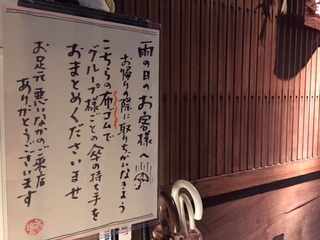 雨の日のお客様へ
お帰り際に取りちがいなきよう
こちらの布ゴムで
グループ様ごとの傘の持ち手を
おまとめくださいませ
お足元悪いなかのご来店
ありがとうございます